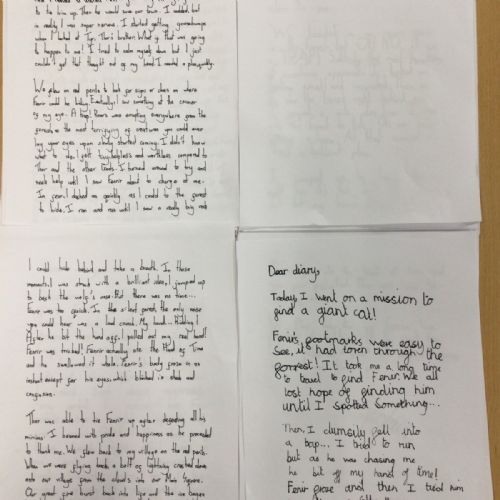 to the trim up. Then he would save our town. I nodded but
in reality I was super nervous. I started getting goosebumps
when I looked at Tyr, Thor's brother. What if that was going
to happen to me! I tried to calm myself down but I just
couldn't get that thought out of my head. I wanted a peaceful
We flew on and
look for signs or clues on where
Fenrir could be hiding. Eventually I saw something at the corner
of my eye. A trap! Roars was erupting everywhere from the
forest as the most terrifying of creatures you could ever
lay your eyes upon slowly started coming. I didn't know
what to do. I felt
and worthless compared to
Thor and the other Gods. I turned around to try and
seek help until I saw Fenrir about to charge at me.
In fear, I dashed as
as I could to the forest
to hide. I ran and ran until I saw a really big rock
I could hide behind and take a breath. In these
moments, I was struck with a brilliant idea, I jumped up
to beat the wolf's
But there was no time...
Fenrir was too quick. In the silent forest, the only noise
you could hear was a loud crunch. My hand... Kidding!
After he bit the hand, I pulled out my real hand!
Fenrir was tricked! Fenrir actually ate the Hand of Time
and he swallowed it whole. Fenrir's body froze in an
instant except for his eyes, which blinked in shock and
confusion.
Thor was able to tie Fenrir up after defeating all his
minions. I beamed with pride and happiness as he proceeded
to thank me. We flew back to my village on the red
When we were flying back a bolt of lightning crashed down
onto our village from the clouds into our Main Square.
Our great fire burst back into life and the ice began
Dear diary,
Today, I went on a mission to
find a giant cat!
Fenir's footmarks were easy to
see, it had toren through the
forrest! It took me a long time
to travel to find Fenir. We all
lost hope of finding him
until I spotted something...
Then, I clumsily fell into
a trap... I tried to run
but as he was chasing me
he bit off my hand of time!
Fenir froze and then I tied him